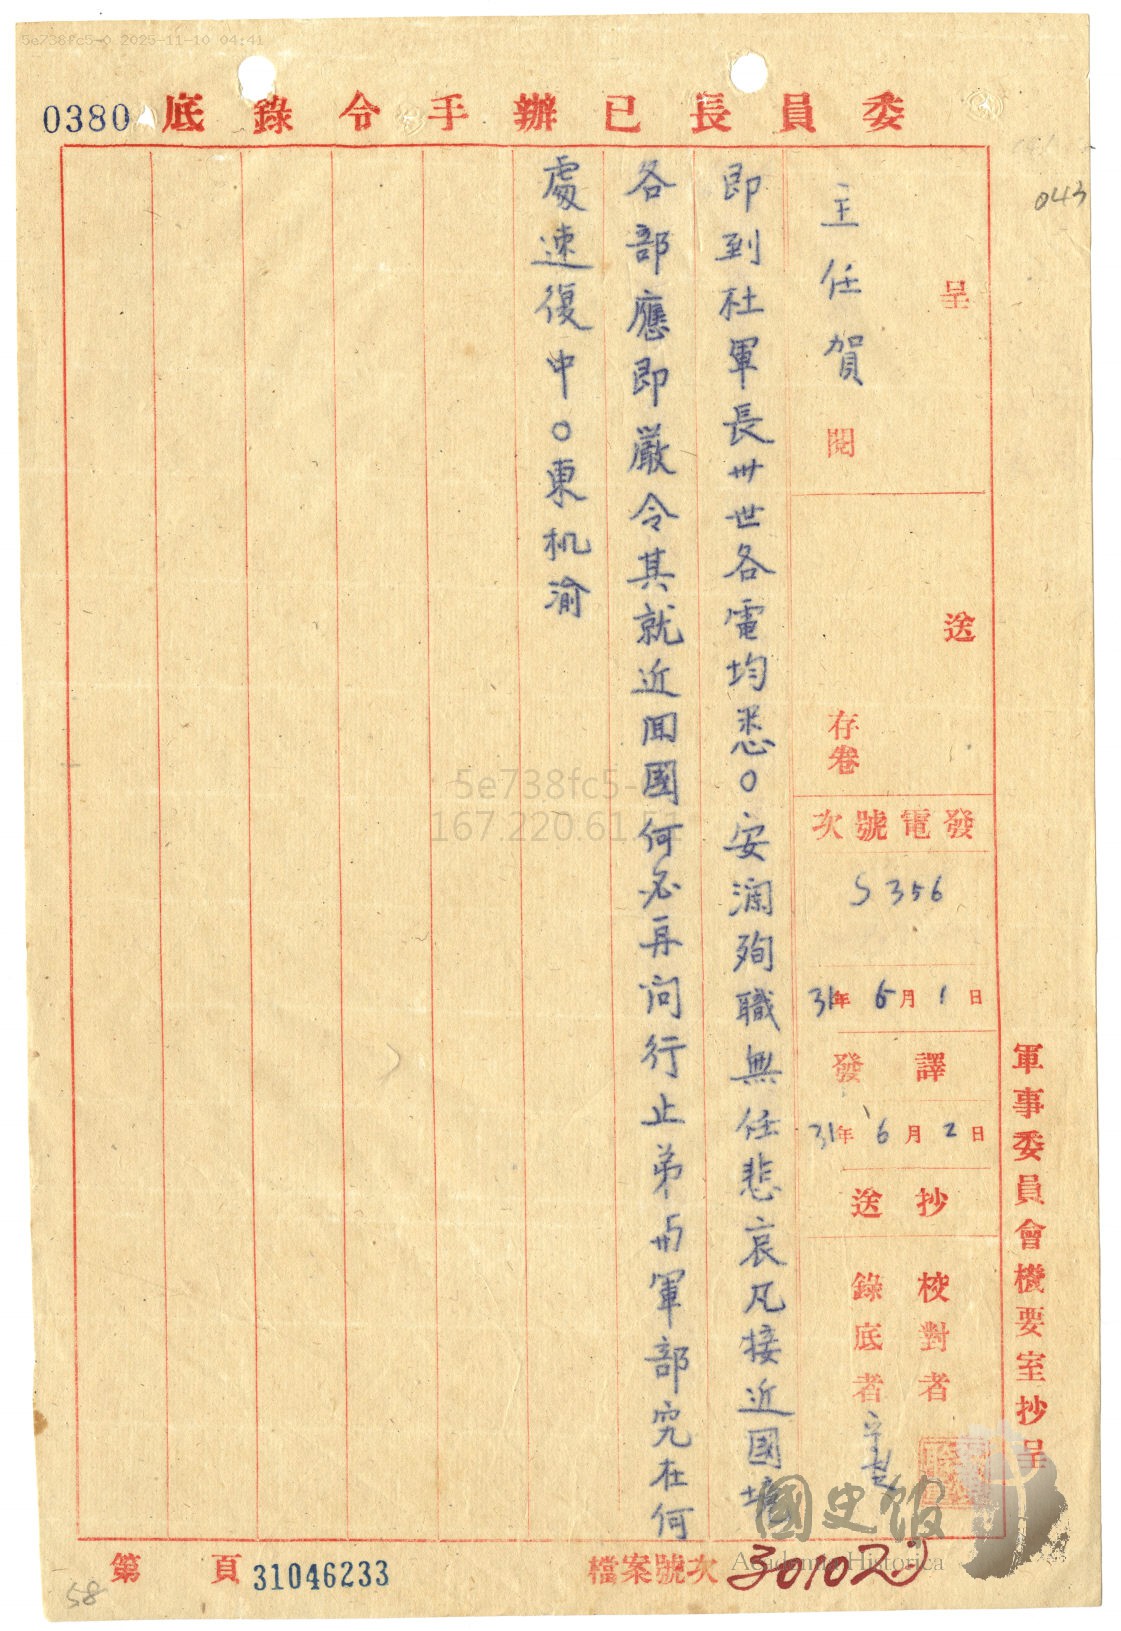 5e738fc5-0 2025-11-10 04:41
0380
委員長已辦手令錄底
043
呈
主任賀
閱
送
存卷
發電號次
S 356
31年6月1日
譯發
31年6月2日
抄送
校對者
錄底者
軍事委員會機要室抄呈
即到杜軍長卅世各電均悉○安瀾殉職無任悲哀凡接近國境
各部應即嚴令其就近回國何必再问行止弟与卅軍部究在何
處速復中○東机渝
5e738fc5-
167.220.61.51
國史館
Academia Historica
第 頁
31046233
檔案號次
30102
58